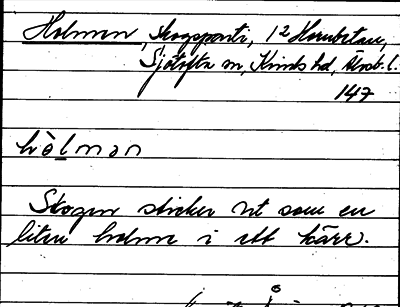 Holmen, skogsparti, 1² Hornbetan,
Sjötofta sn, Kinds hd, Älvsb. l.
147
hòlmən
Skogen sticker ut som en
liten holme i ett kärr.